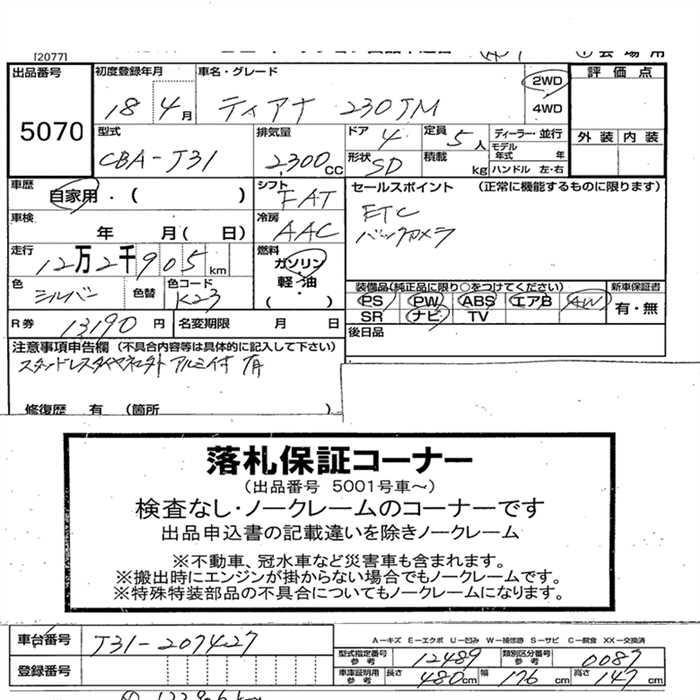 [2077]
出品番号 5070
初度登録年月 18 4月
車名・グレード ティアナ 230JM
2WD
4WD
評価点
外装 内装
型式 CBA-J31
排気量 2,300cc
ドア 4
定員 5人
形状 SD
積載 kg
ディーラー・並行
モデル年式 年
ハンドル 左・右
車歴 自家用・( )
シフト FAT
セールスポイント (正常に機能するものに限ります)
ETC
バックカメラ
車検 年 月(日)
冷房 AAC
走行 12万2千905km
燃料 ガソリン
軽・油・
( )
色 シルバー
色替
色コード K23
装備品(純正品に限り○をつけてください)
PS PW ABS エアB AW
SR ナビ TV
新車保証書
有・無
R券 13190円
名変期限 月 日
後日品
注意事項申告欄 (不具合内容等は具体的に記入して下さい)
アルミ付 有
修復歴 有 (箇所 )
落札保証コーナー
(出品番号 5001号車~)
検査なし・ノークレームのコーナーです
出品申込書の記載違いを除きノークレーム
※不動車、冠水車など災害車も含まれます。
※搬出時にエンジンが掛からない場合でもノークレームです。
※特殊特装部品の不具合についてもノークレームになります。
車台番号 J31-207427
登録番号
A-キズ E-エクボ U-凹み W-補修感 S-サビ C-腐食 XX-交換済
型式指定番号 参考 12489
類別区分番号 参考 0087
車庫証明用 参考 長さ 480cm 幅 176cm 高さ 147cm